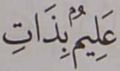 عَلِيمٌۢ بِذَاتِ